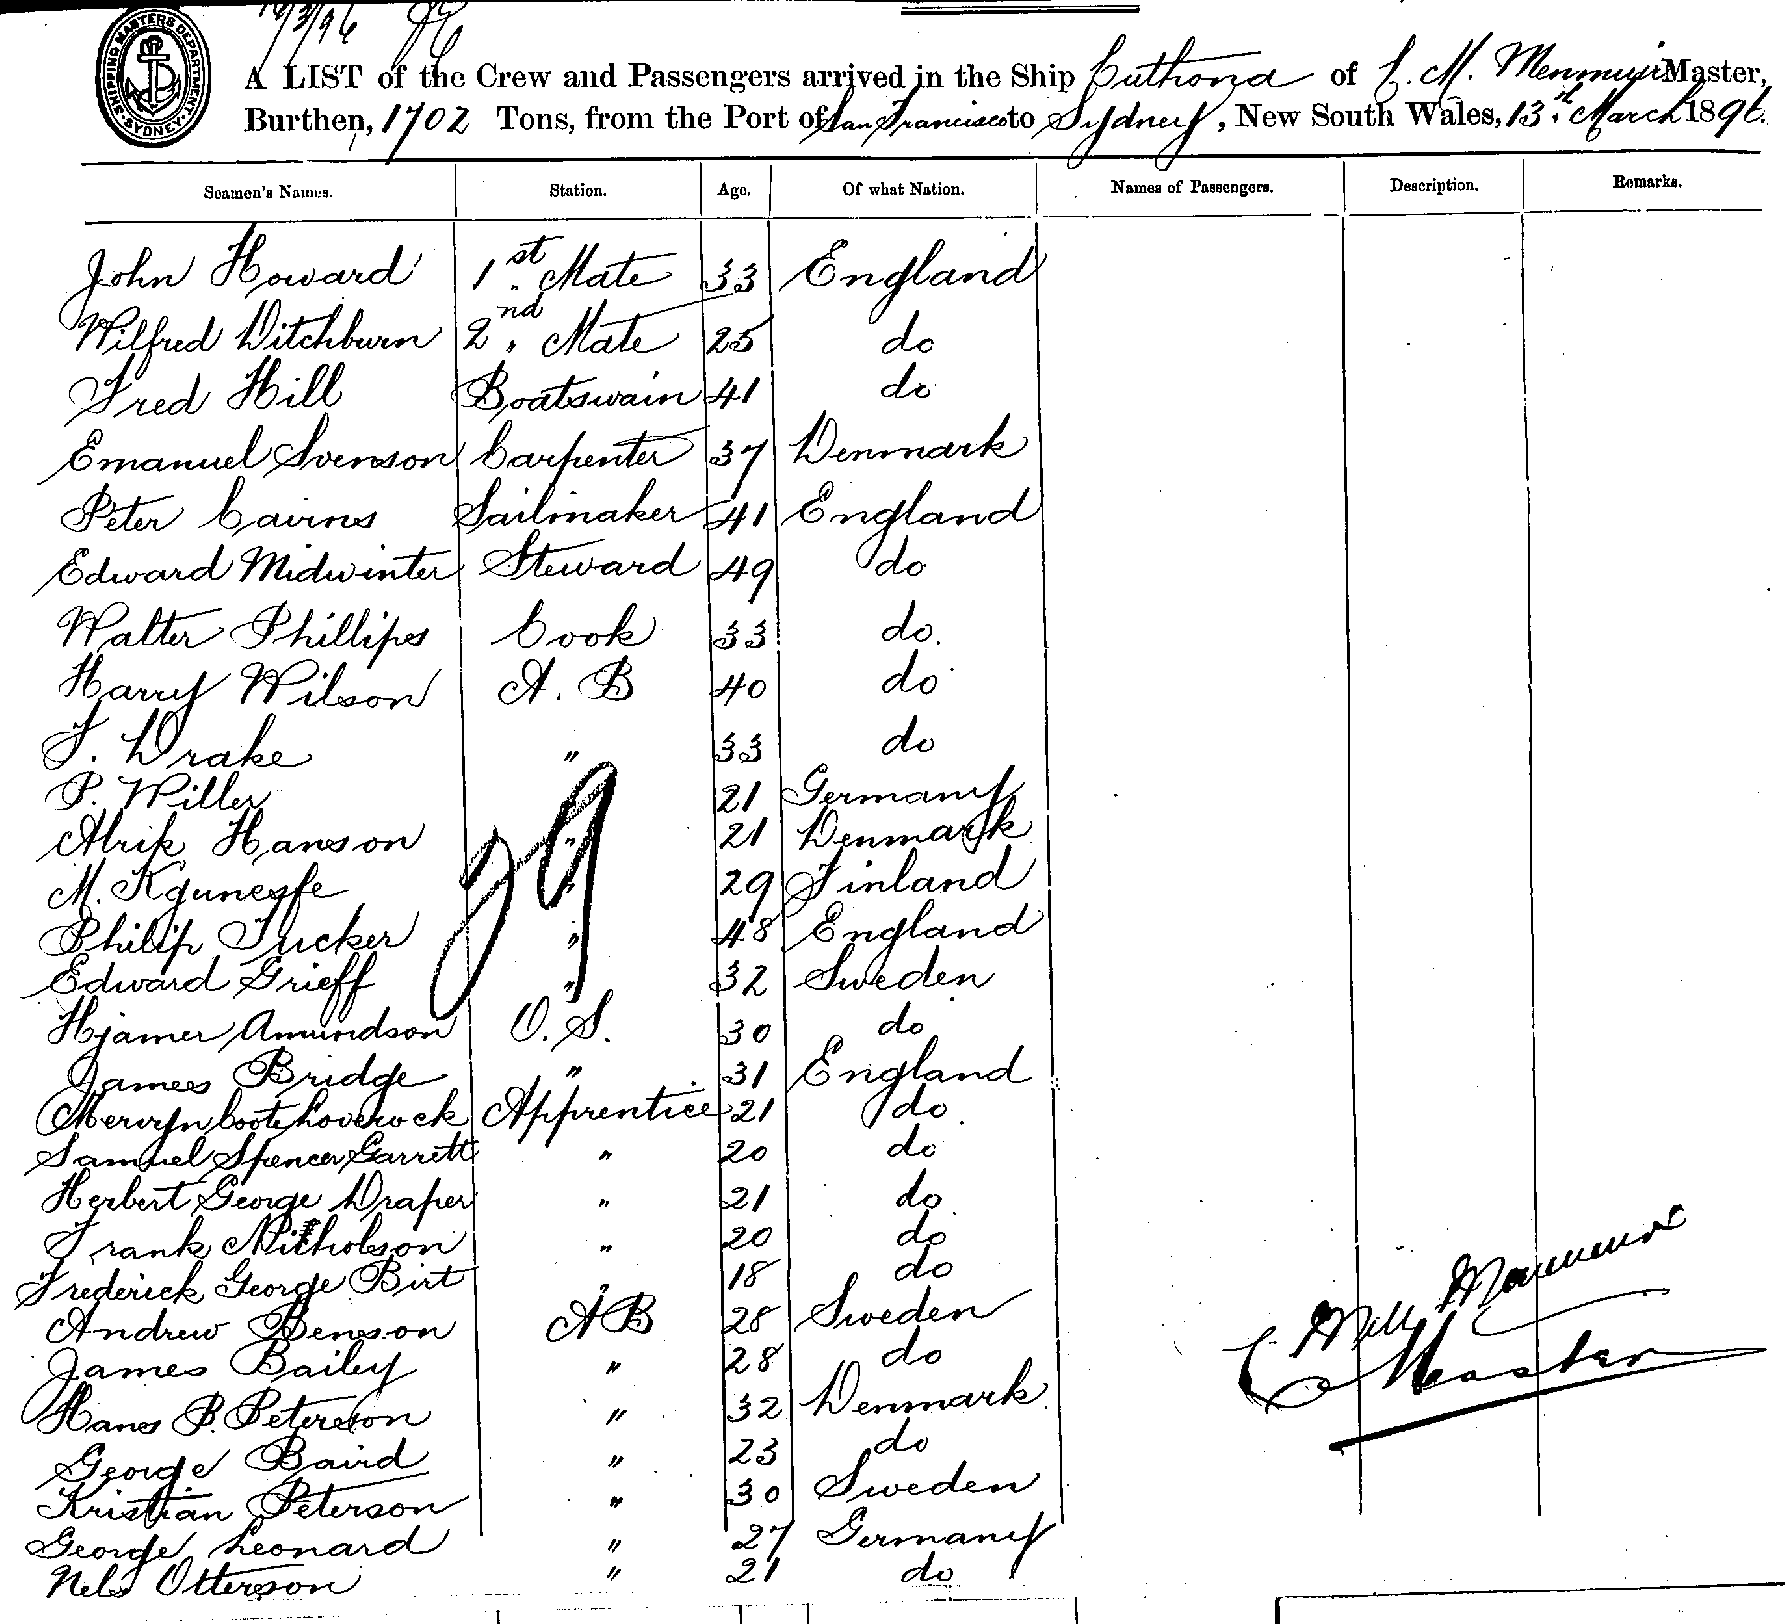 13/3/96
SHIPPING MASTERS DEPARTMENT SYDNEY
A LIST of the Crew and Passengers arrived in the Ship Cuthona of C. M. Menmuir Master,
Burthen, 1702 Tons, from the Port of San Francisco to Sydney, New South Wales, 13th March 1896.
Seamen's Names. Station. Age. Of what Nation. Names of Passengers. Description. Remarks.
John Howard 1st Mate 33 England
Wilfred Ditchburn 2nd Mate 25 do
Fred Hill Boatswain 41 do
Emanuel Svenson Carpenter 37 Denmark
Peter Cairns Sailmaker 41 England
Edward Midwinter Steward 49 do
Walter Phillips Cook 33 do.
Harry Wilson A. B 40 do
F. Drake " 33 do
P. Willer 21 Germany
Alrik Hanson " 21 Denmark
M. " 29 Finland
Philip Tucker " 48 England
Edward Grieff " 32 Sweden
29
Hjamer Amundson O. S. 30 do
James Bridge " 31 England
Mervyn Coote Loverock Apprentice 21 do
Samuel Spencer Garrett " 20 do
Herbert George Draper " 21 do
Frank Nitholson " 20 do
Frederick George Birt " 18 do
Andrew Benson A B 28 Sweden
James Bailey " 28 do
Hans P. Peterson " 32 Denmark
George Baird " 23 do
Kristian Peterson " 30 Sweden
George Leonard " 27 Germany
Nels Otterson " 21 do
C Mell Menmuir
Master